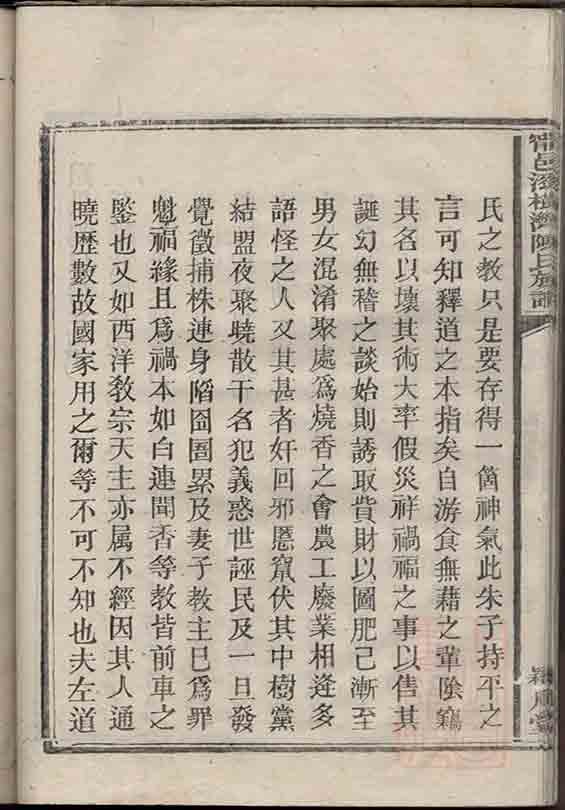 氏之教只是要存得一箇神氣此朱子持平之
言可知釋道之本指矣自游食無藉之輩陰竊
其名以壞其術大率假災祥禍福之事以售其
誕幻無稽之談始則誘取貲財以圖肥己漸至
男女混淆聚處爲燒香之會農工廢業相逢多
語怪之人又其甚者奸回邪慝竄伏其中樹黨
結盟夜聚曉散干名犯義惑世誣民及一旦發
覺徵捕株連身陷囹圄累及妻子教主巳爲罪
魁福緣且爲禍本如白連聞香等教皆前車之
鑒也又如西洋教宗天主亦属不經因其人通
曉歷數故國家用之爾等不可不知也夫左道